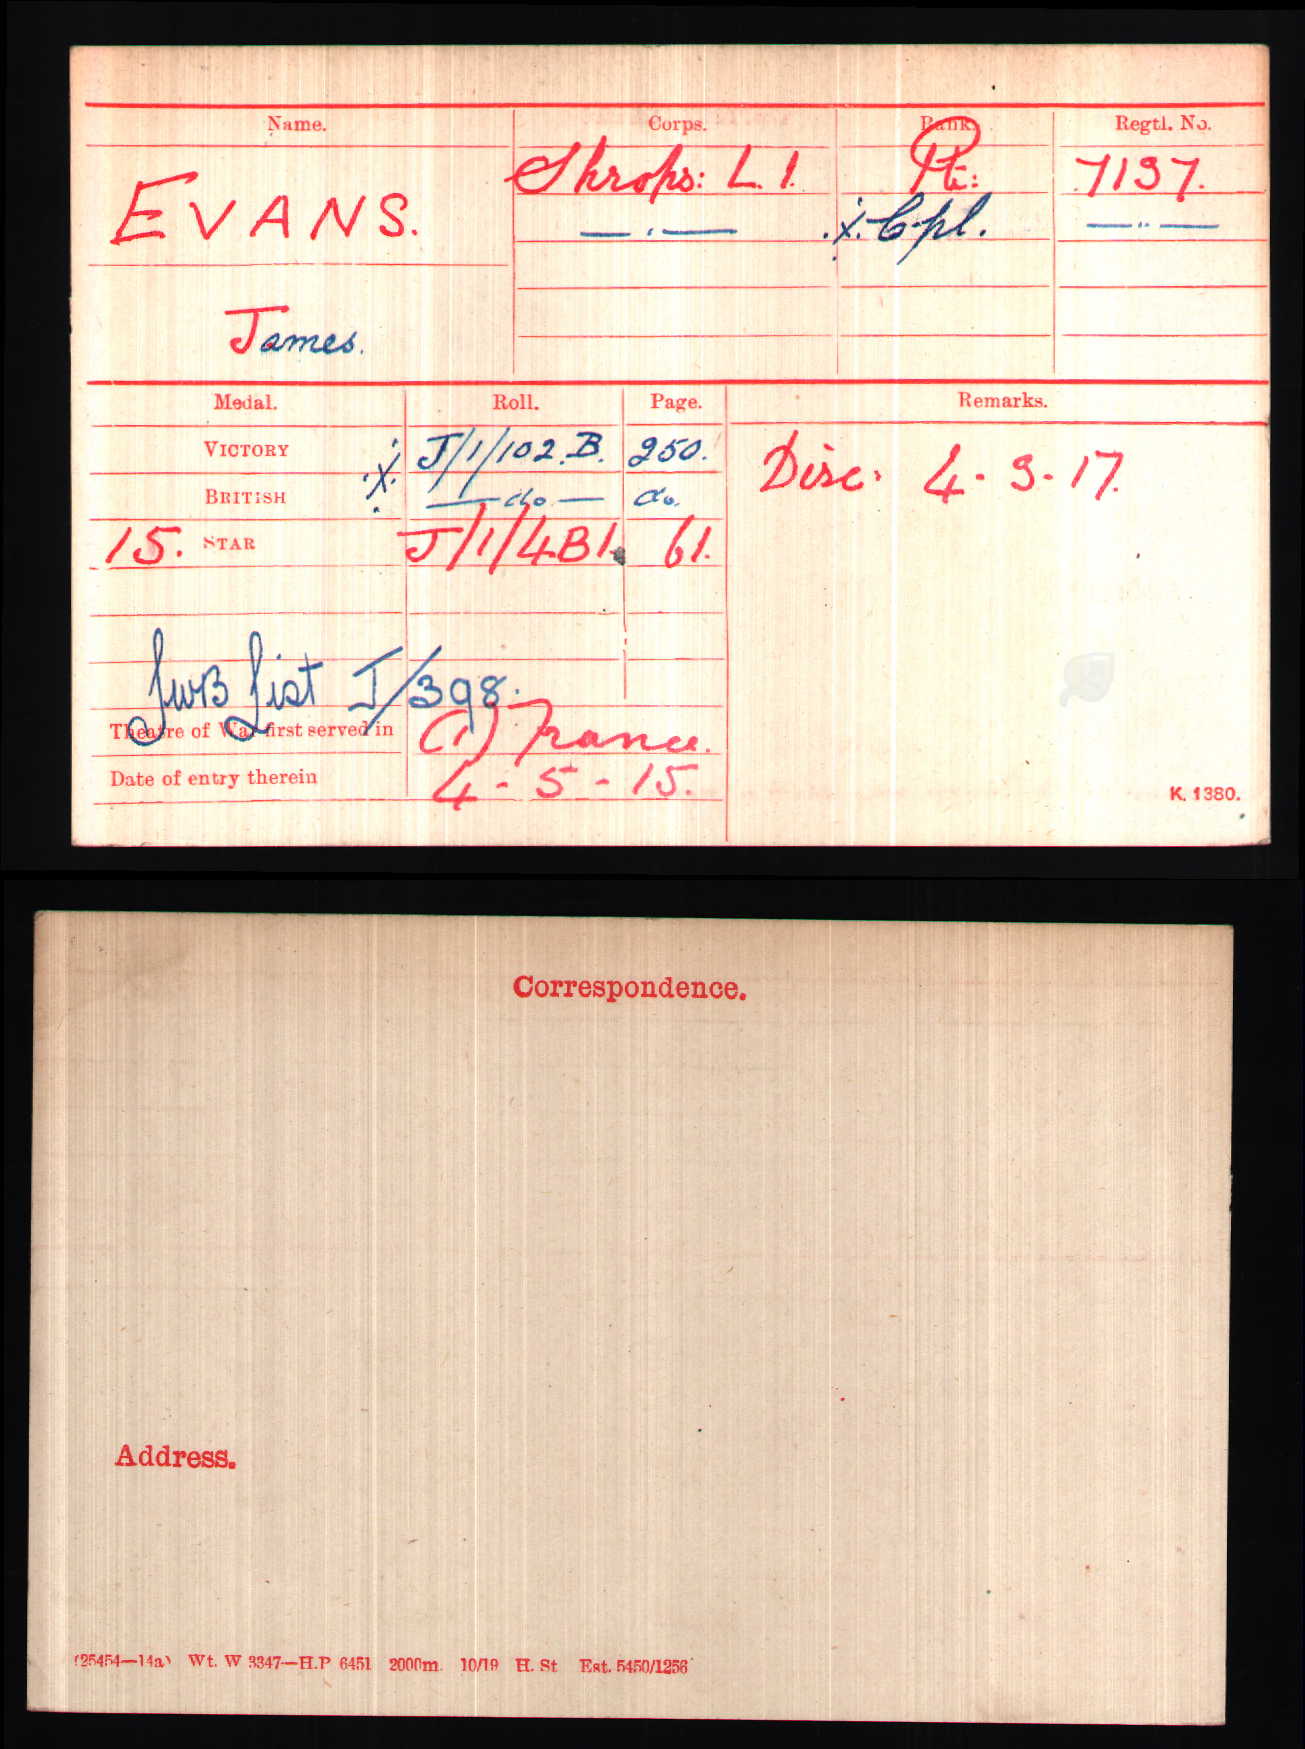 Name. Corps. Rank. Regtl. No.
EVANS. Shrops: L.I. Pte: 7137.
—"— .X. Cpl. —"—
James.
Medal. Roll. Page. Remarks.
VICTORY .X. J/1/102.B. 250. Disc. 4-3-17.
BRITISH — do — do.
15. STAR J/1/4B1. 61.
SWB List J/398.
Theatre of War first served in (1) France.
Date of entry therein 4-5-15.
K. 1380.
Correspondence.
Address.
(25454—14a) Wt. W 3347—H.P 6451 2000m. 10/19 H. St Est. 5450/1256